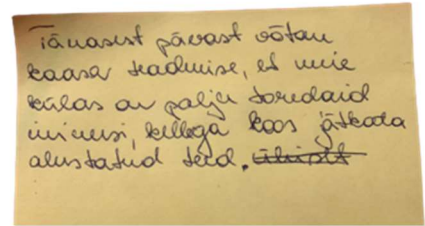 Tänasest pävast võtan
kaasa teadmise, et meie
külas on palju toredaid
inimesi, kellega koos jätkata
alustatud teed.